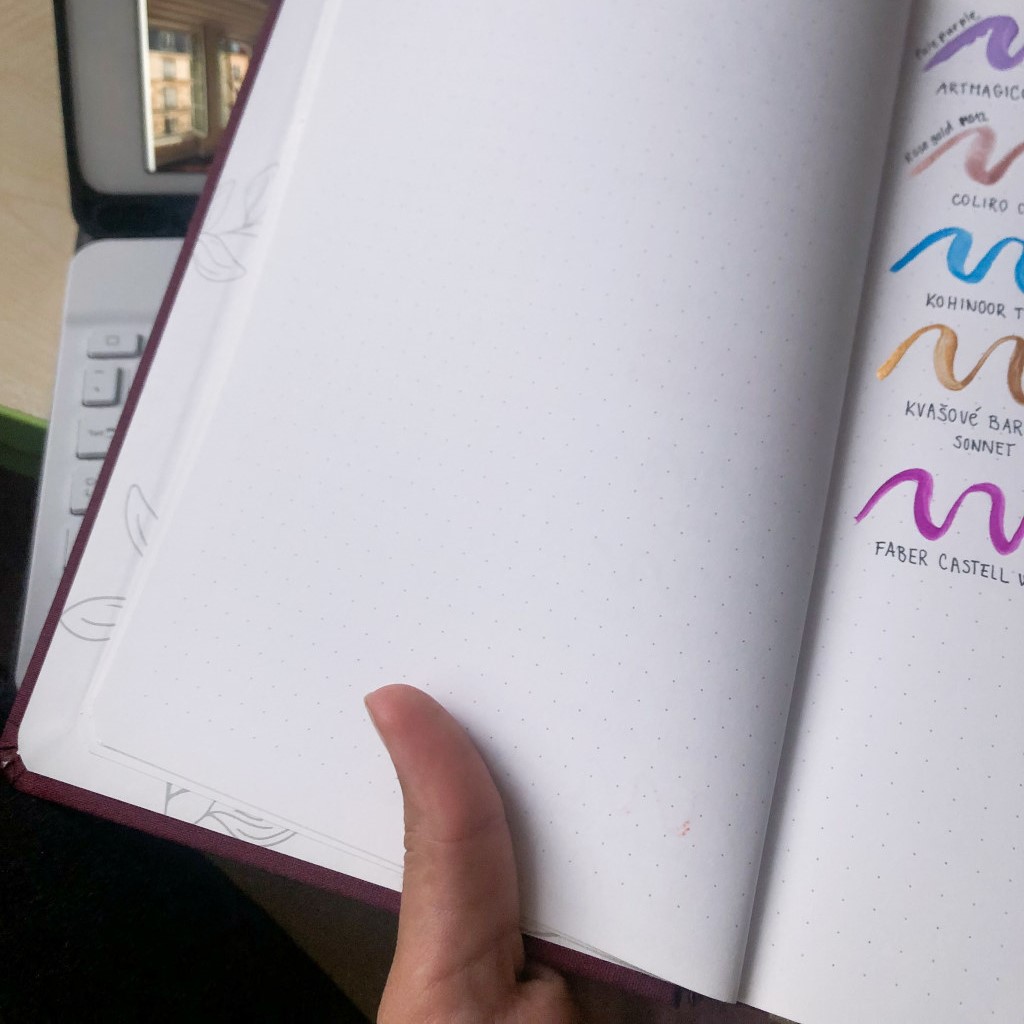 Pale purple
ARTMAGICO
Rose gold M012
COLIRO
KOHINOOR T
KVAŠOVÉ BAR
SONNET
FABER CASTELL